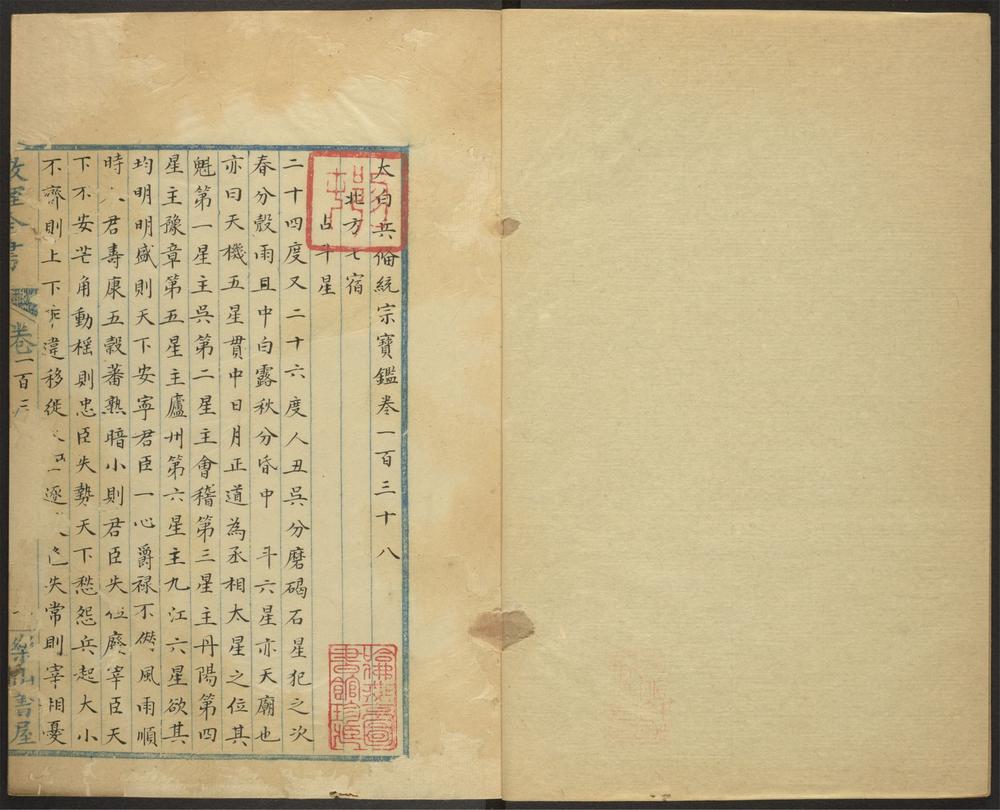 太白兵備統宗寶鑑卷一百三十八
北方七宿
占斗星
二十四度又二十六度人丑吳分磨碣石星犯之次
春分穀雨旦中白露秋分昏中 斗六星亦天廟也
亦曰天機五星貫中日月正道為丞相太星之位其
魁第一星主吳第二星主會稽第三星主丹陽第四
星主豫章第五星主廬州第六星主九江六星欲其
均明明盛則天下安寧君臣一心爵祿不僭風雨順
時人君壽康五穀蕃熟暗小則君臣失位廢宰臣天
下不安芒角動榣則忠臣失勢天下愁怨兵起大小
不齊則上下乖違移徙 逐 色失常則宰相憂
卷一百三
樂仙書屋